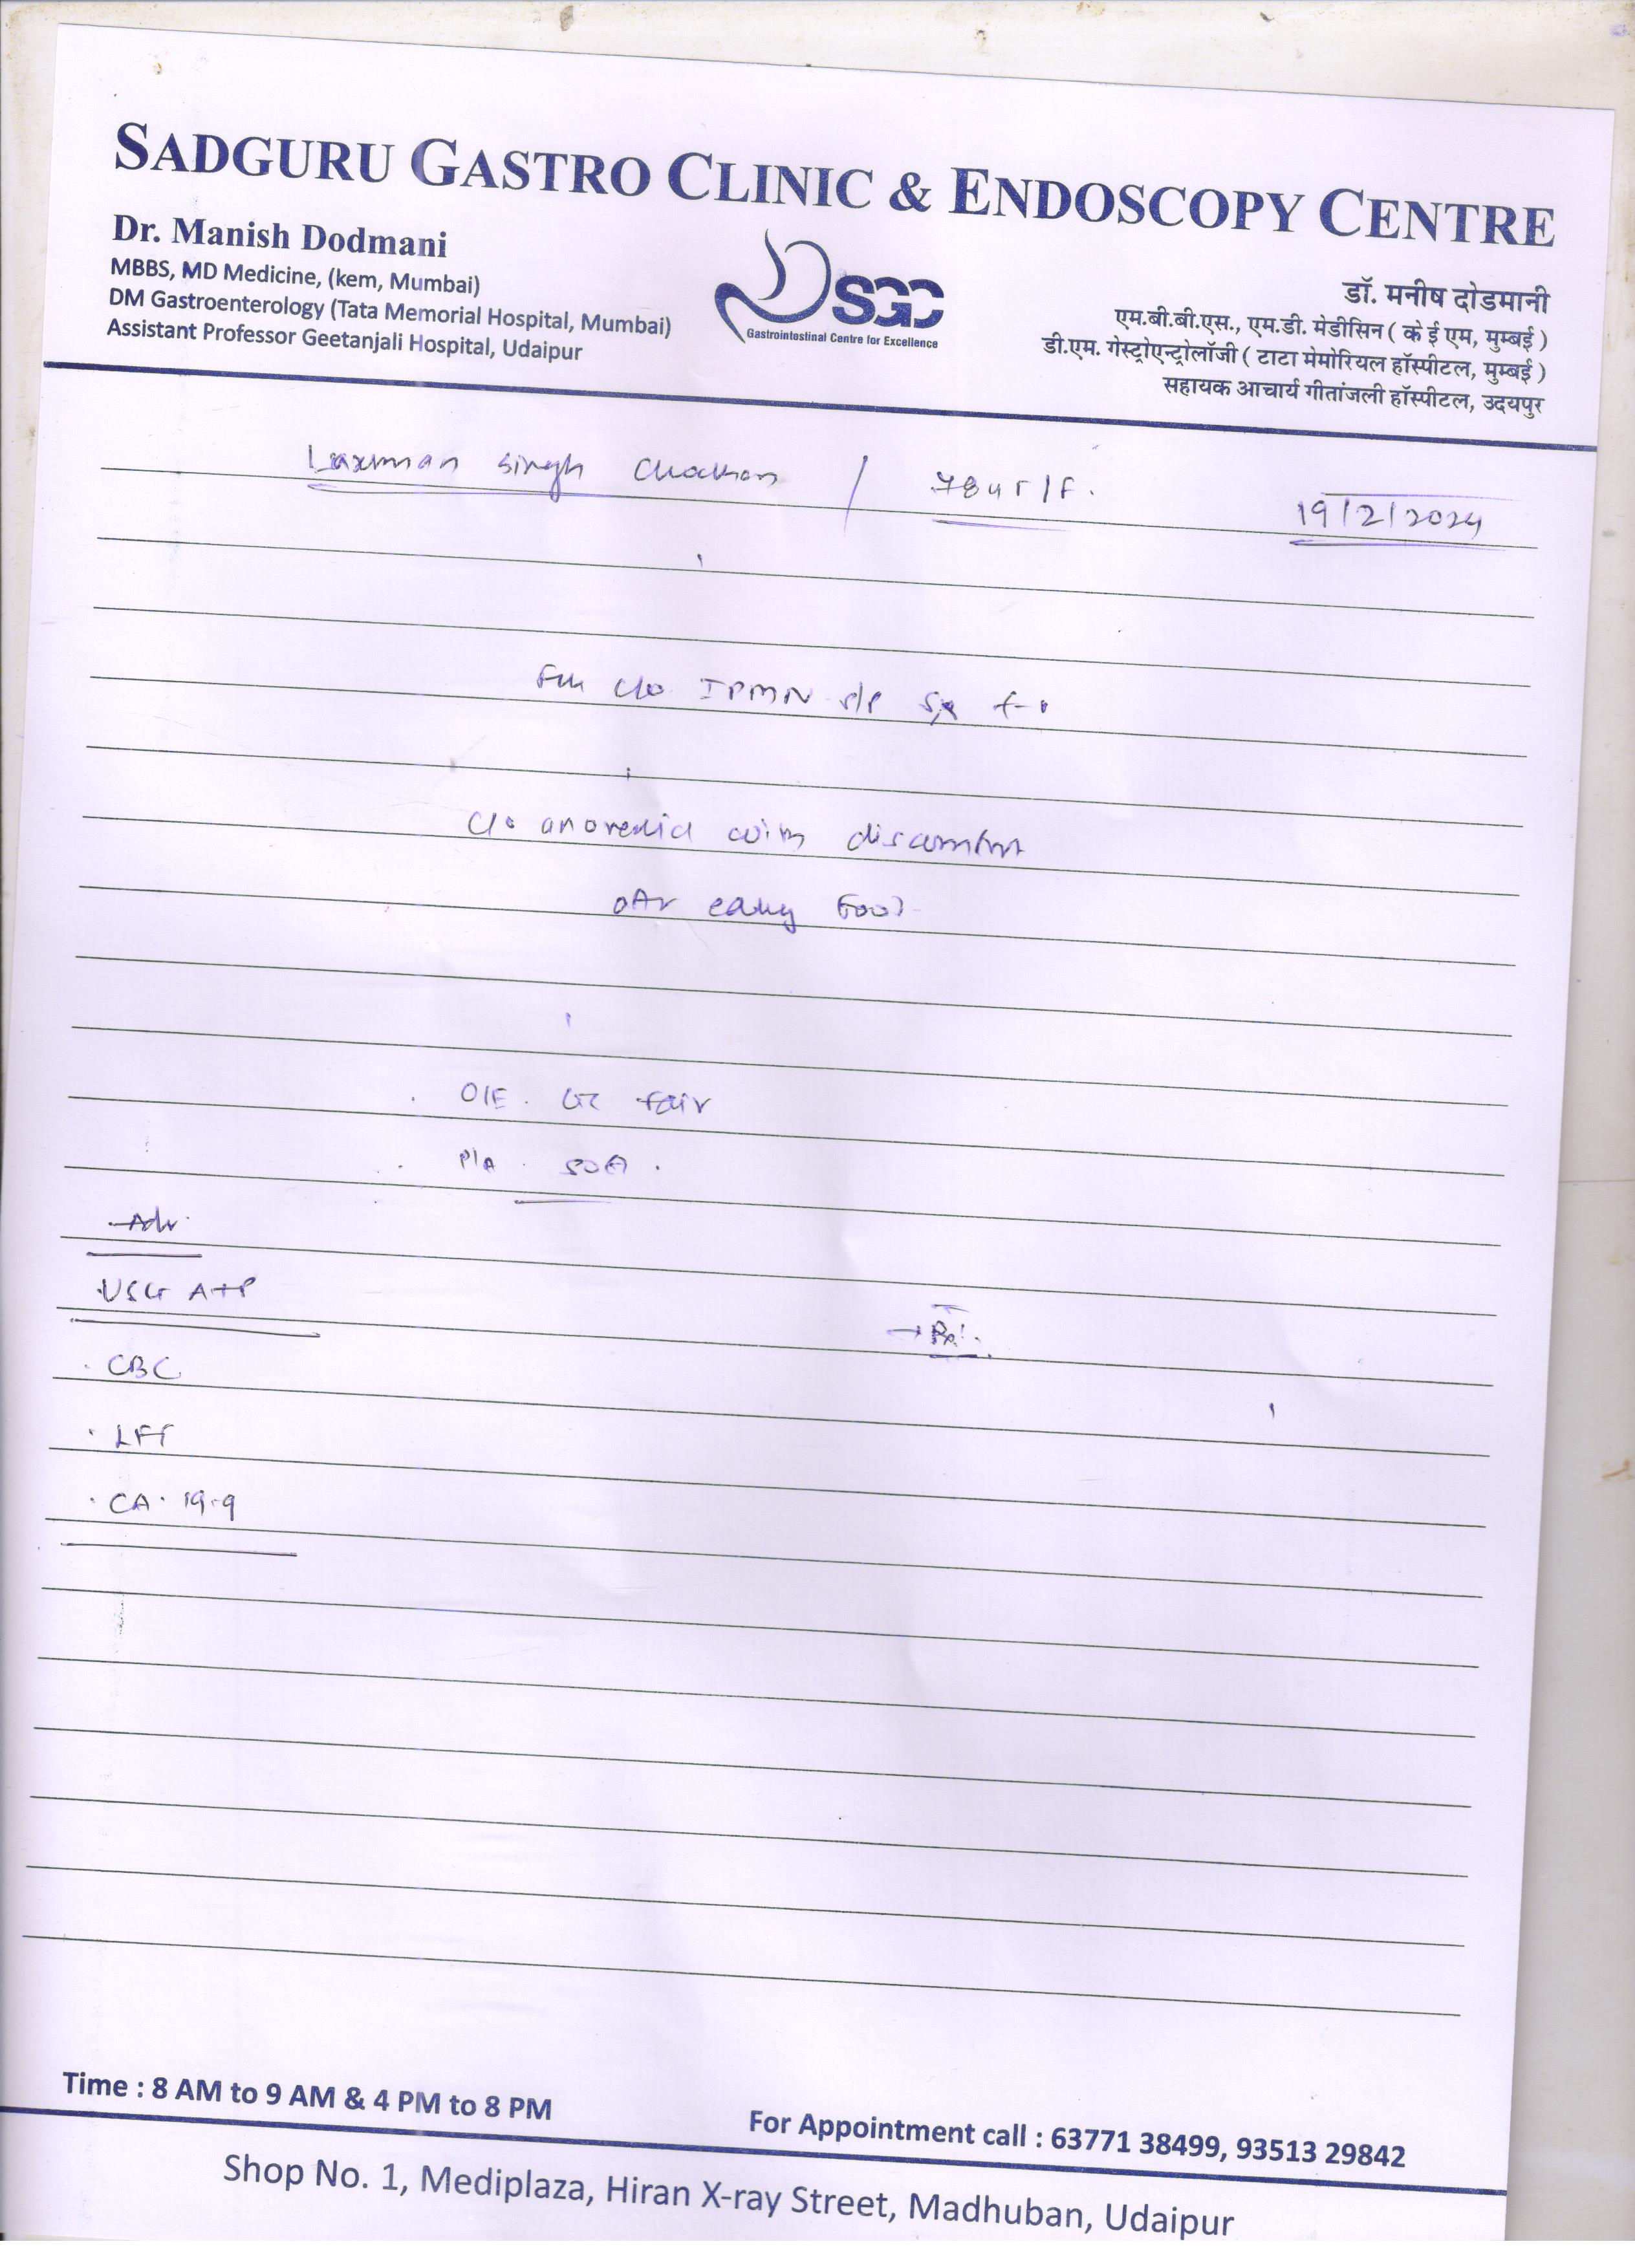 SADGURU GASTRO CLINIC & ENDOSCOPY CENTRE
Dr. Manish Dodmani
MBBS, MD Medicine, (kem, Mumbai)
DM Gastroenterology (Tata Memorial Hospital, Mumbai)
Assistant Professor Geetanjali Hospital, Udaipur
SGC
Gastrointestinal Centre for Excellence
डॉ. मनीष दोडमानी
एम.बी.बी.एस., एम.डी. मेडीसिन ( के ई एम, मुम्बई )
डी.एम. गेस्ट्रोएन्ट्रोलॉजी ( टाटा मेमोरियल हॉस्पीटल, मुम्बई )
सहायक आचार्य गीतांजली हॉस्पीटल, उदयपुर
Laxman Singh Chouhan / 78 yr / F. 19/2/2024
c/o IPMN s/p
c/o anorexia with discomfort
after eating food
O/E. GC fair
P/A. soft.
Adv
USG A+P
CBC
LFT
CA. 19.9
Time : 8 AM to 9 AM & 4 PM to 8 PM
For Appointment call : 63771 38499, 93513 29842
Shop No. 1, Mediplaza, Hiran X-ray Street, Madhuban, Udaipur